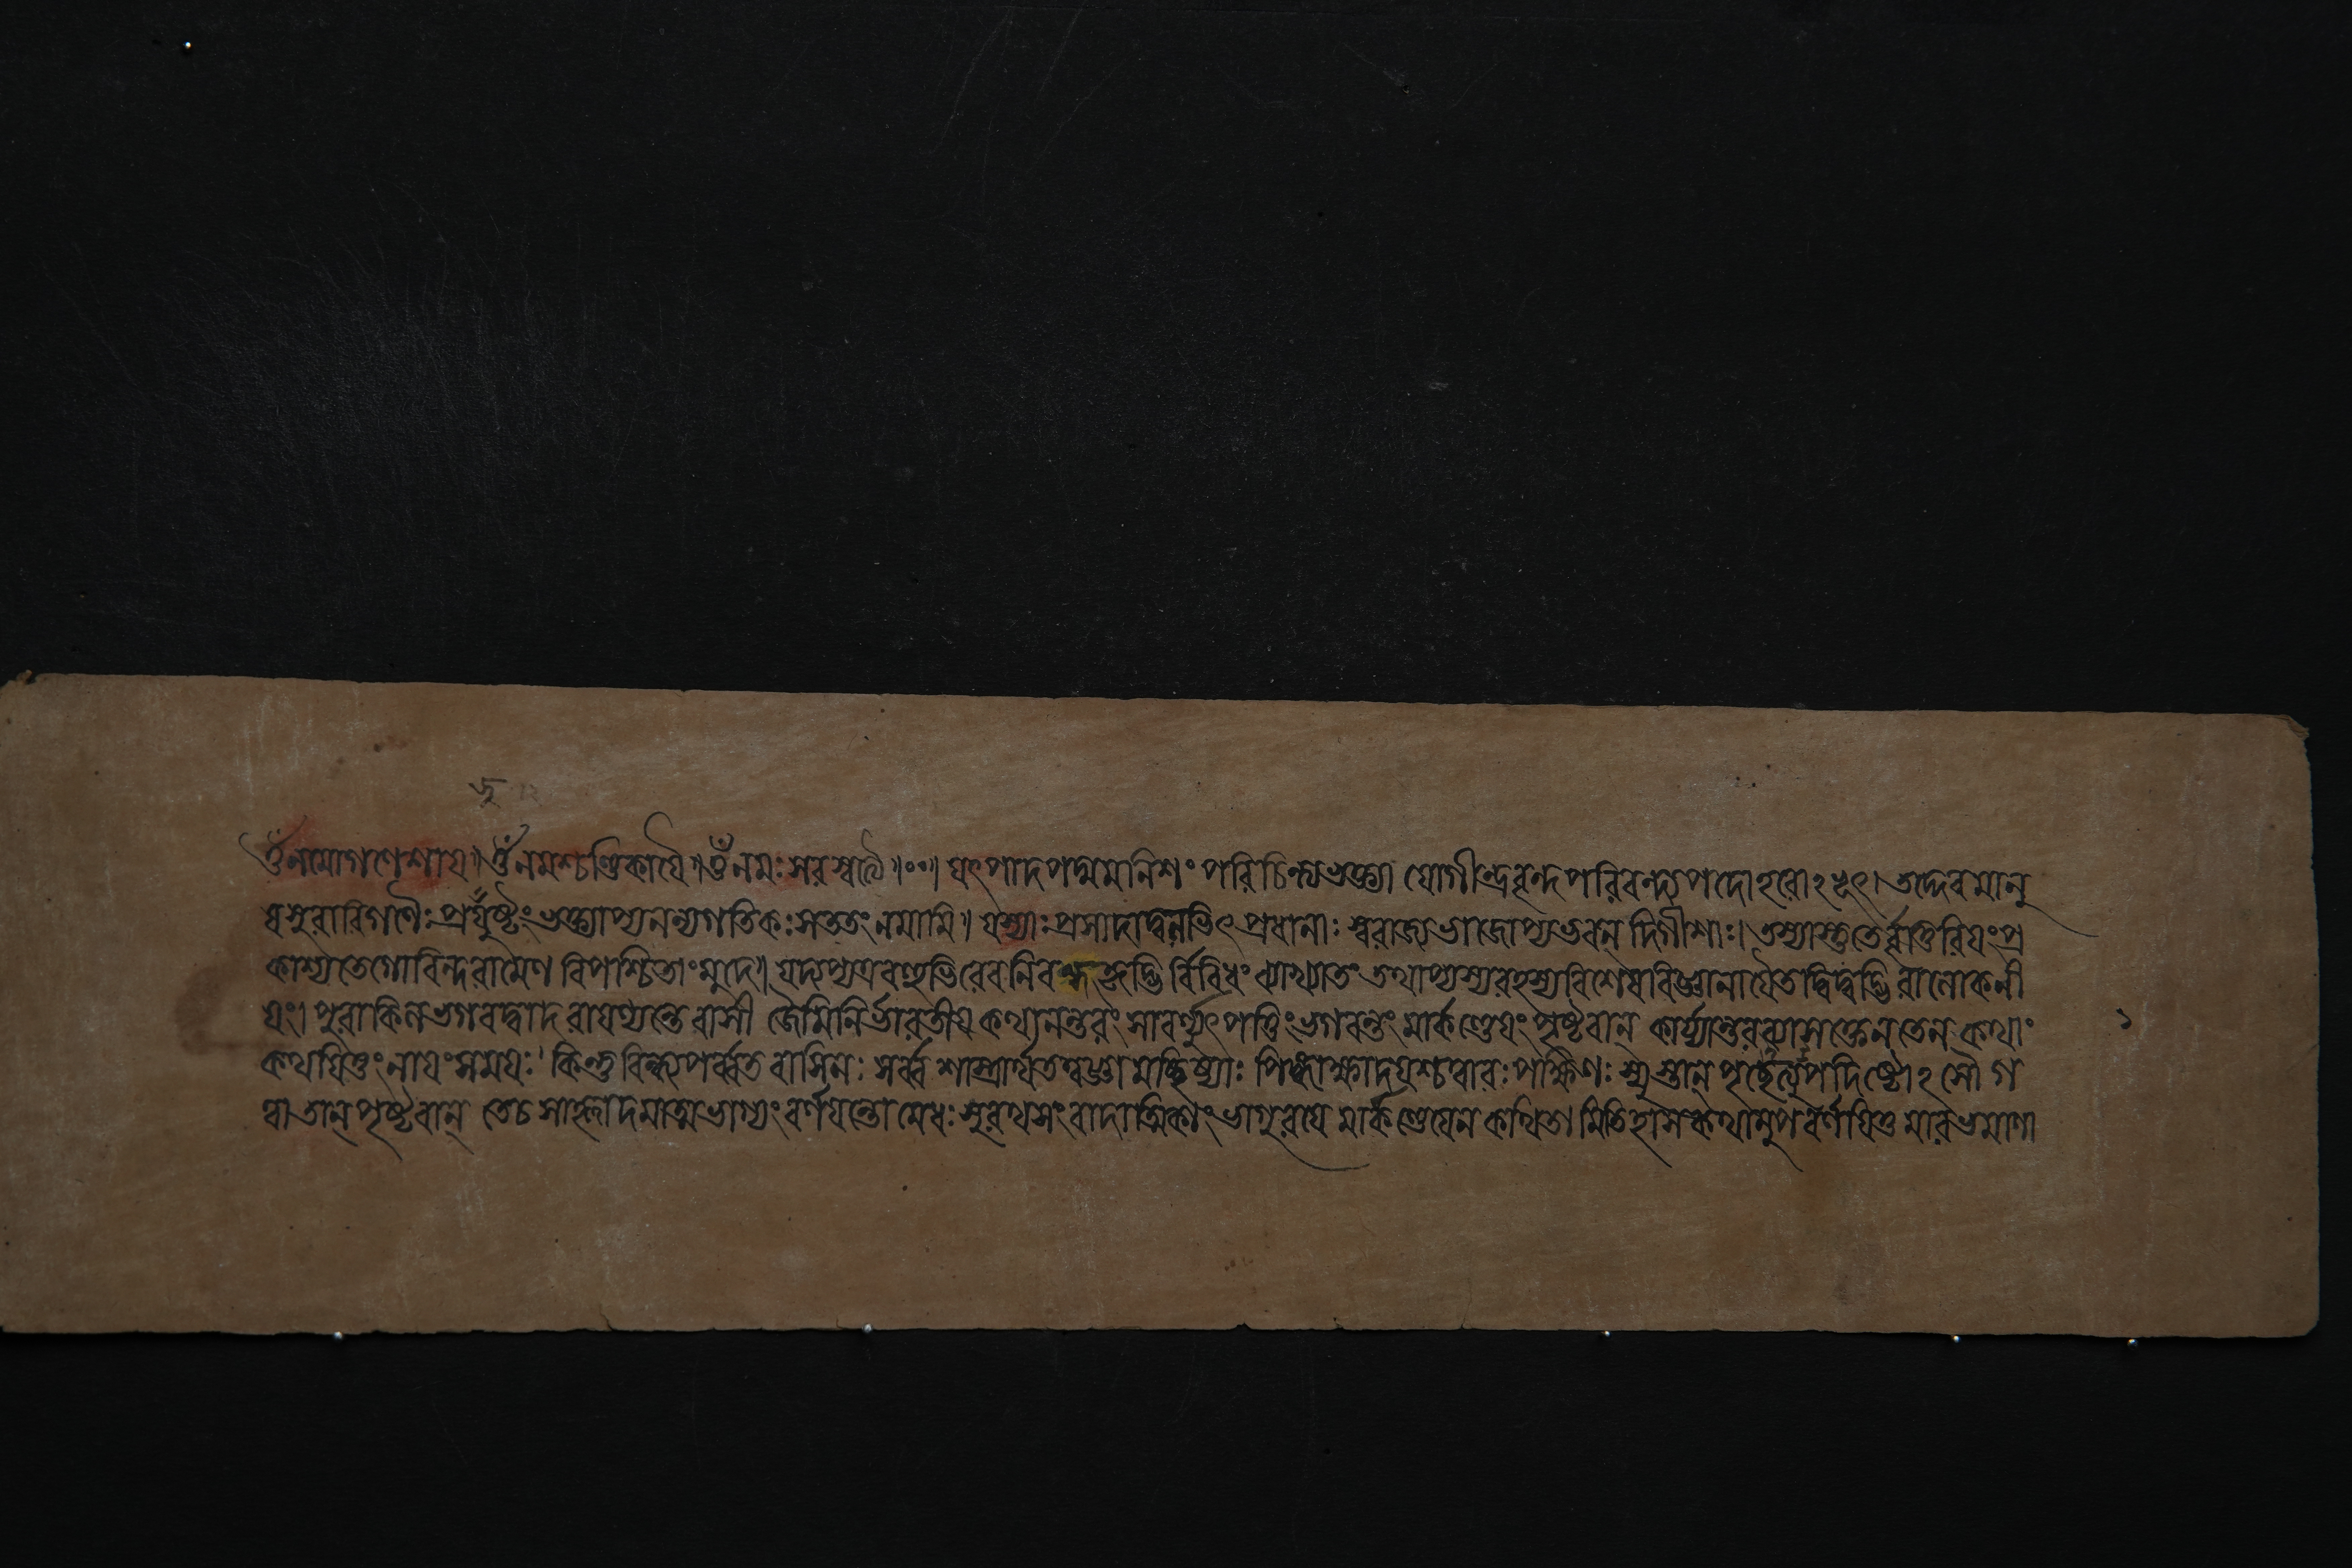 ওঁ নমো গণেশায়॥ ওঁ নমশ্চণ্ডিকায়ৈ॥ ওঁ নমঃ সরস্বত্যৈ॥ঃ০॥ যৎপাদপদ্মমনিশং পরিচিন্ত্য ভক্ত্যা যোগীন্দ্রবৃন্দপরিবন্দ্যপদো হরোঽভূৎ। তদ্দেবমানু
ষসুরারিগণৈঃ প্রযুষ্টং ভক্ত্যাপ্যনন্যগতিকঃ সততং নমামি॥ যস্যাঃ প্রসাদাদ্বলভিৎপ্রধানাঃ স্বরাজ্যভাজোপ্যভবন্ দিগীশাঃ। তস্যাস্তুতের্ব্বাতিরিয়ং প্র
কাশ্যতে গোবিন্দরামেণ বিপাশ্চিতাং মুদে॥ যদ্যপ্যত্র বহুভিরেব নিবন্ধকৃদ্ভির্বিবিধং ব্যাখ্যাতং তথাপ্যস্য রহস্যবিশেষাবিজ্ঞানায়ৈতদ্বিদ্বদ্ভিরালোকনী
য়ং। পুরা কিল ভগবদ্বাদরায়ণ্যন্তেবাসী জৈমিনির্ভারতীয়কথানন্তরং সাবর্ণ্যুৎপত্তিং ভগবন্তং মার্কণ্ডেয়ং পৃষ্টবান্ কার্য্যান্তরব্যাসক্তেন তেন কথাং
কথয়িতুং নায়ং সময়ঃ। কিন্তু বিন্ধ্যপর্ব্বতবাসিনঃ সর্ব্বশাস্ত্রার্থতত্বজ্ঞা মচ্ছিষ্যাঃ পিঙ্গাক্ষাদয়শ্চত্বারঃ পক্ষিণঃ স্যুস্তান্ পৃচ্ছেত্যুপদিষ্টোঽসৌ গ
ত্বা তান্ পৃষ্টবান্ তে চ সাহ্লাদমাত্মভাগ্যং বর্ণয়ন্তো মেধঃসুরথসংবাদাত্মিকাং ভাগুরয়ে মার্কণ্ডেয়েন কথিতামিতিহাসকথামুপবর্ণয়িতুমারভমাণা
১